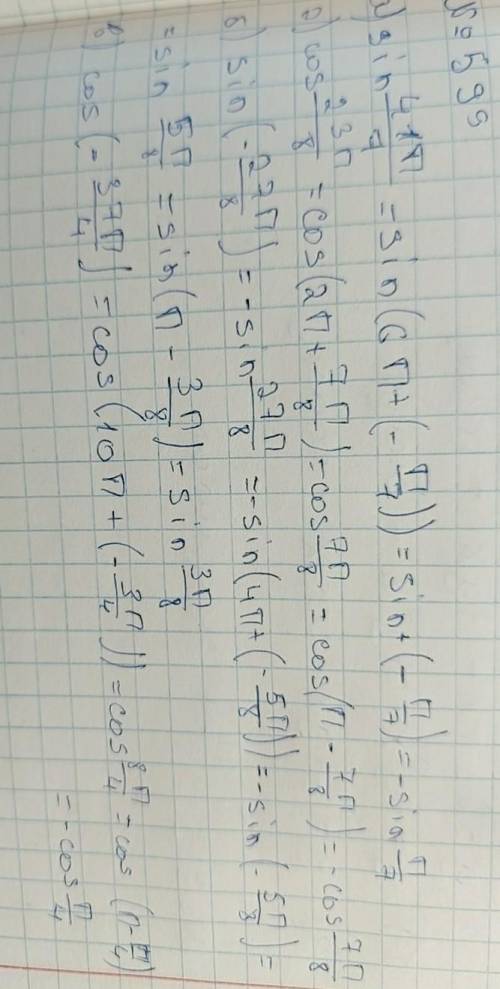 № 599
а) sin 41π/7 = sin(6π + (-π/7)) = sin + (-π/7) = -sin π/7
а) cos 23π/8 = cos(2π + 7π/8) = cos 7π/8 = cos(π - 7π/8) = -cos 7π/8
б) sin(-27π/8) = -sin 27π/8 = -sin(4π + (-5π/8)) = -sin(-5π/8) =
= sin 5π/8 = sin(π - 3π/8) = sin 3π/8
в) cos(-37π/4) = cos(10π + (-3π/4)) = cos 3π/4 = cos(π - π/4)
= -cos π/4